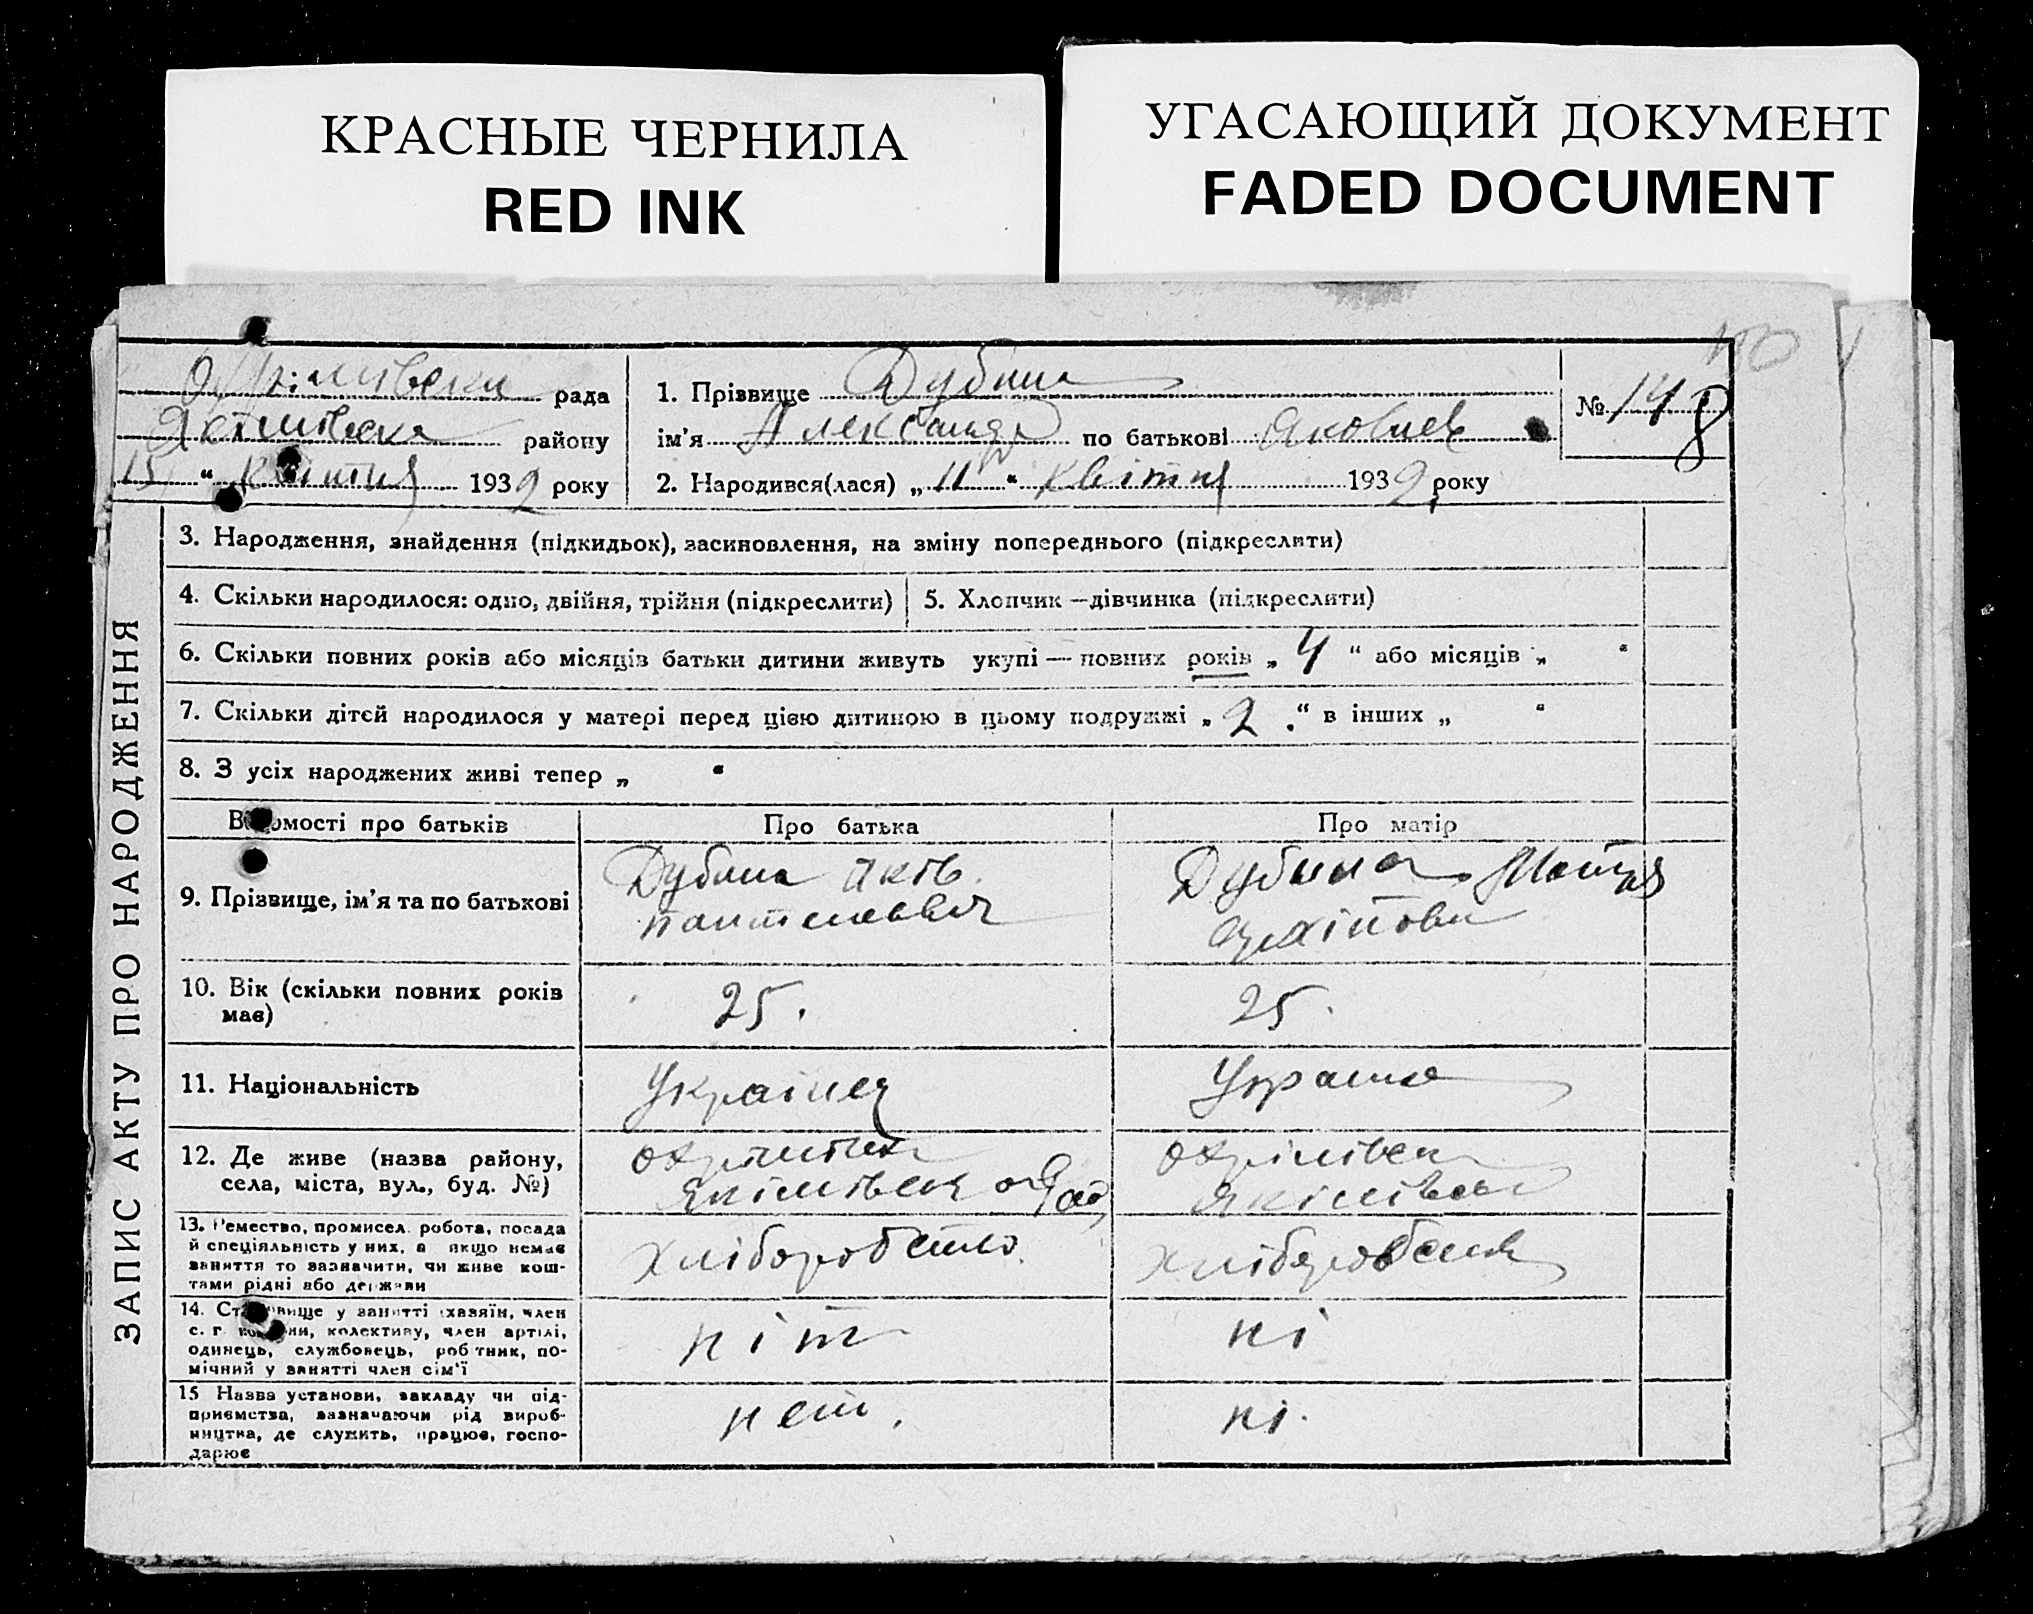 КРАСНЫЕ ЧЕРНИЛА
RED INK
УГАСАЮЩИЙ ДОКУМЕНТ
FADED DOCUMENT
рада
району
15 " квітня 1932 року
1. Прізвище Дубина
ім'я Александр по батькові Яковлев
2. Народився(лася) „ 11 " квітня 1932 року
№ 148
ЗАПИС АКТУ ПРО НАРОДЖЕННЯ
3. Народження, знайдення (підкидьок), засиновлення, на зміну попереднього (підкреслити)
4. Скільки народилося: одно, двійня, трійня (підкреслити)
5. Хлопчик — дівчинка (підкреслити)
6. Скільки повних років або місяців батьки дитини живуть укупі — повних років „ 4 " або місяців „ "
7. Скільки дітей народилося у матері перед цією дитиною в цьому подружжі „ 2 . " в інших „ "
8. З усіх народжених живі тепер „ "
Відомості про батьків
Про батька
Про матір
9. Прізвище, ім'я та по батькові
Дубина Яків
Дубина
10. Вік (скільки повних років
має)
25.
25.
11. Національність
Українец
12. Де живе (назва району,
села, міста, вул., буд. №)
13. Ремество, промисел, робота, посада
й спеціяльність у них, а якщо немає
заняття то зазначити, чи живе кош-
тами рідні або держави
14. Становище у занятті (хазяїн, член
с. г. комуни, колективу, член артілі,
одинець, службовець, робітник, по-
мічний у занятті член сім'ї
ніт
ні
15 Назва установи, закладу чи під-
приємства, зазначаючи рід вироб-
ництва, де служить, працює, госпо-
дарює
нет.
ні.